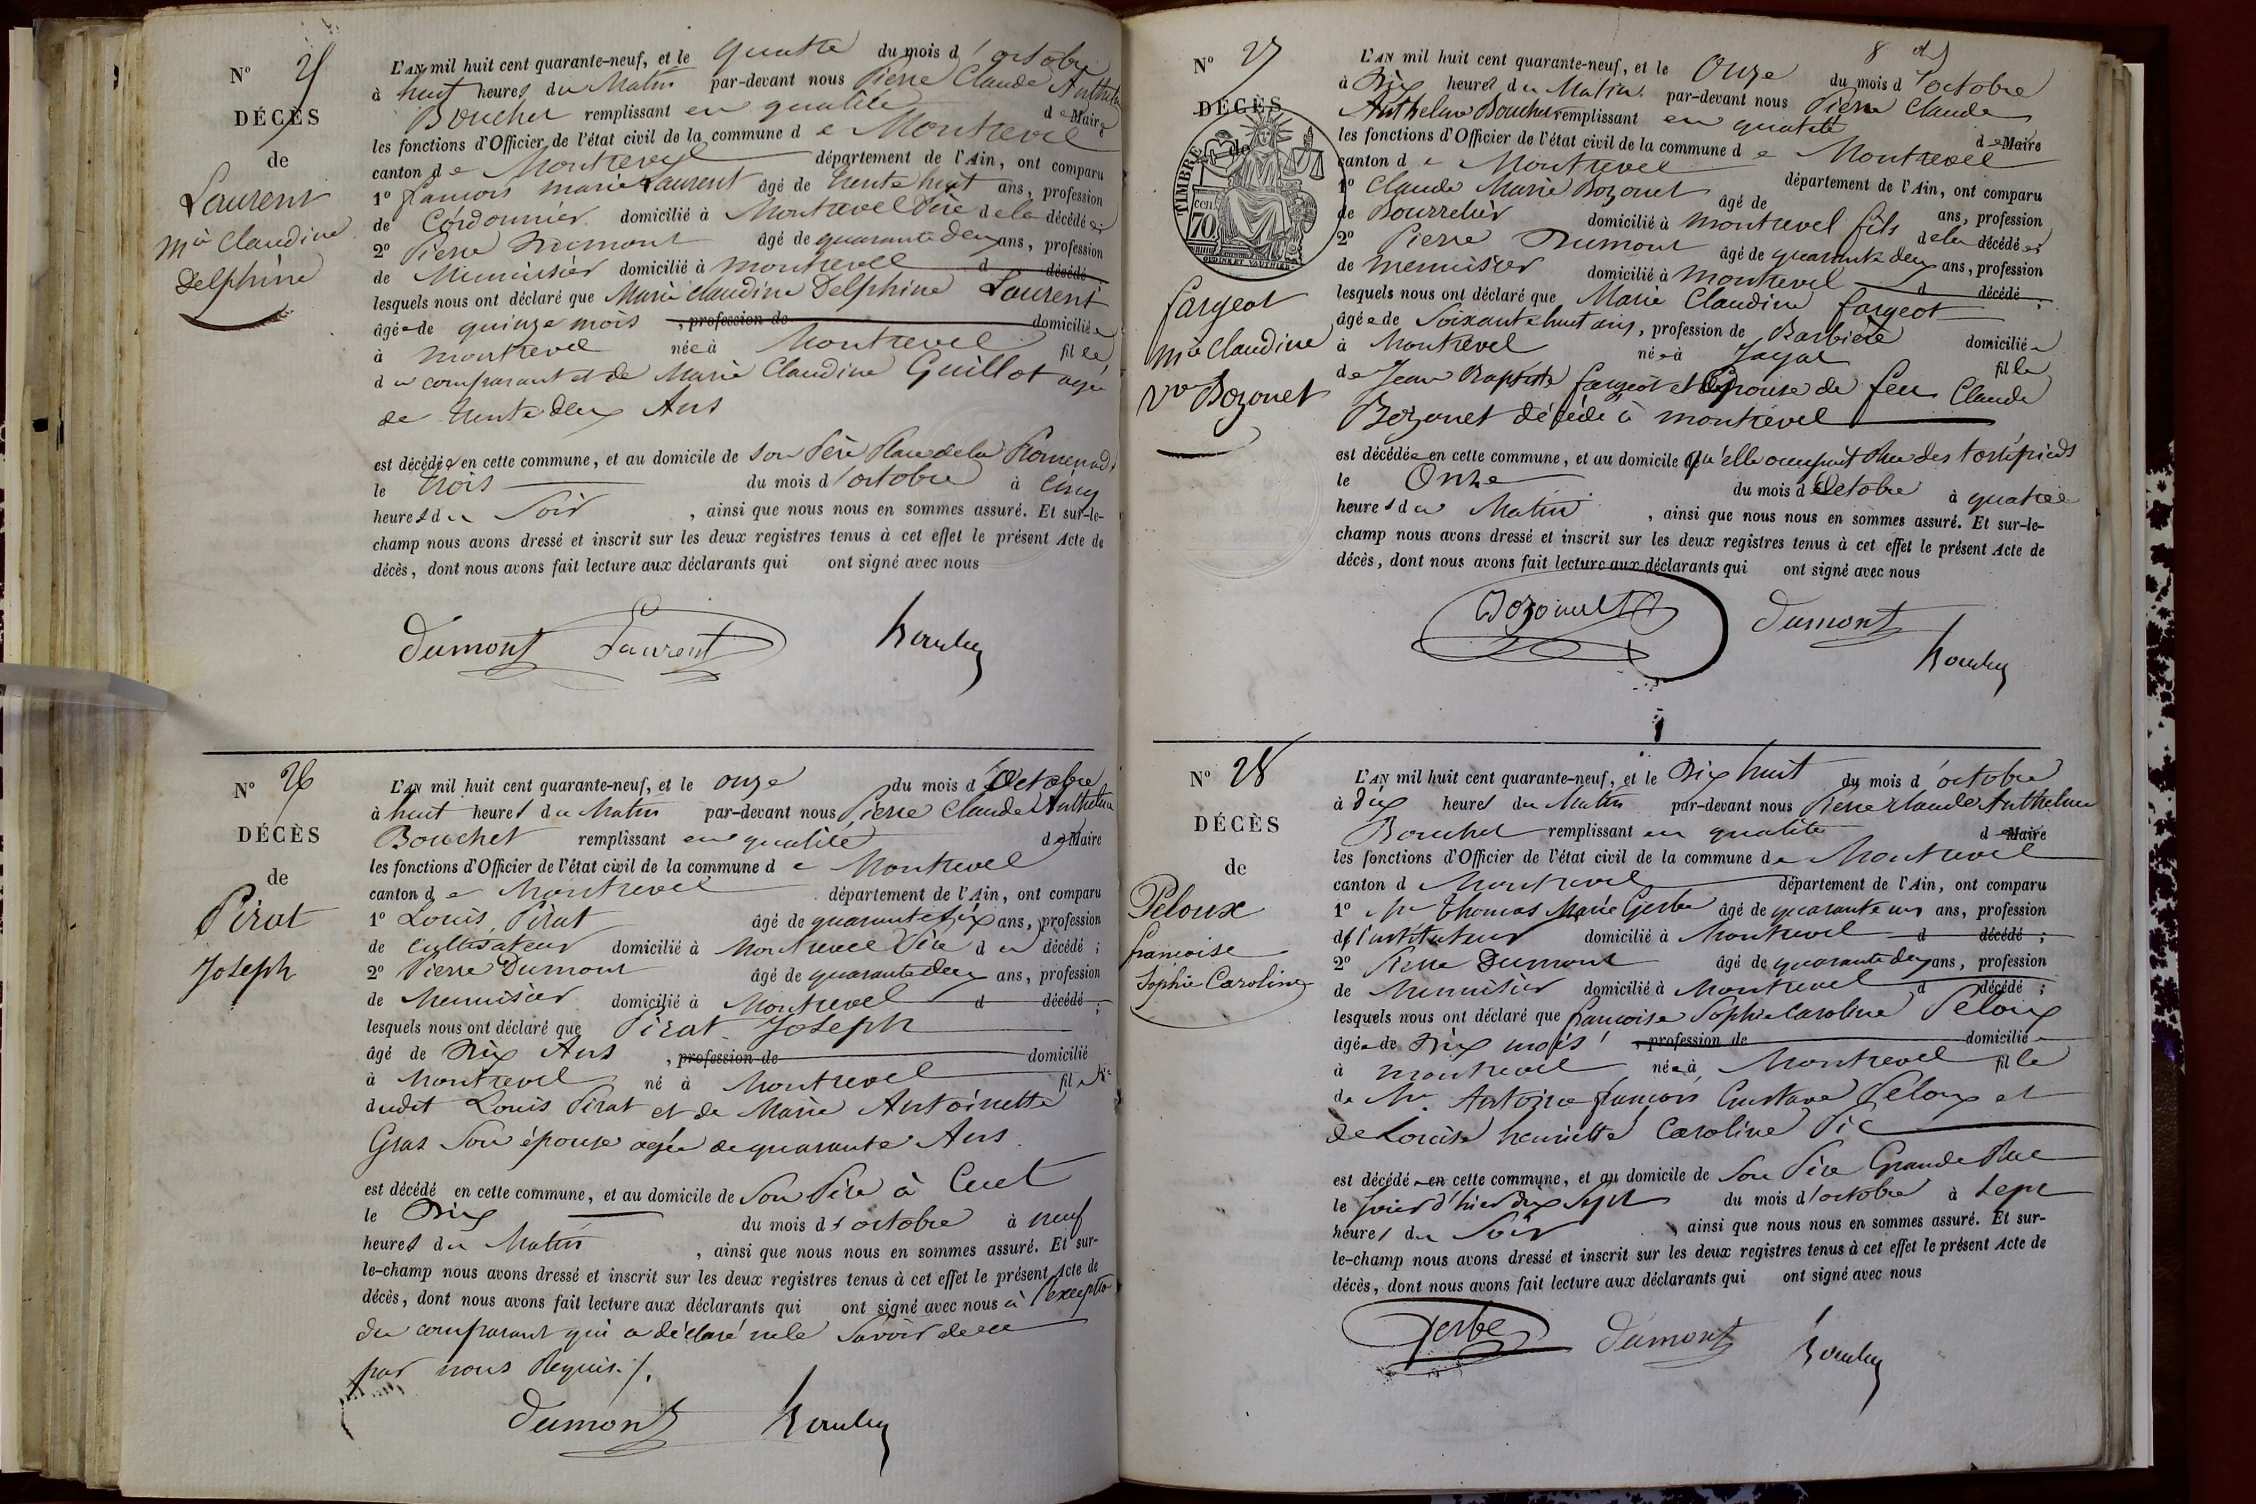 N° 25
DÉCÈS
de
Laurent
Mie Claudine
Delphine
L'AN mil huit cent quarante-neuf, et le quatre du mois d'octobre
à huit heures du Matin par-devant nous Pierre Claude Anthelme
Bouchet remplissant en qualité de Maire
les fonctions d'Officier de l'état civil de la commune de Montrevel
canton de Montrevel département de l'Ain, ont comparu
1° françois marie Laurent âgé de trente huit ans, profession
de Cordonnier domicilié à Montrevel Père de la décédée;
2° Pierre Dumont âgé de quarante deux ans, profession
de Menuisier domicilié à montrevel d décédé
lesquels nous ont déclaré que Marie Claudine Delphine Laurent
âgée de quinze mois , profession de domiciliée
à montrevel née à Montrevel fille
du comparant et de Marie Claudine Guillot agée
de trente deux Ans
est décédée en cette commune, et au domicile de son Père Place de la Promenade
le trois du mois d'octobre à cinq
heures du Soir , ainsi que nous nous en sommes assuré. Et sur-le-
champ nous avons dressé et inscrit sur les deux registres tenus à cet effet le présent Acte de
décès, dont nous avons fait lecture aux déclarants qui ont signé avec nous
Dumont Laurent Bouchet
N° 26
DÉCÈS
de
Pirat
Joseph
L'AN mil huit cent quarante-neuf, et le onze du mois d'Octobre
à huit heures du Matin par-devant nous Pierre Claude Anthelme
Bouchet remplissant en qualité de Maire
les fonctions d'Officier de l'état civil de la commune de Montrevel
canton de Montrevel département de l'Ain, ont comparu
1° Louis Pirat âgé de quarante six ans, profession
de Cultivateur domicilié à Montrevel Père du décédé ;
2° Pierre Dumont âgé de quarante deux ans, profession
de Menuisier domicilié à Montrevel d décédé ;
lesquels nous ont déclaré que Pirat Joseph
âgé de Dix Ans , profession de domicilié
à Montrevel né à Montrevel fils
dudit Louis Pirat et de Marie Antoinette
Gras Son épouse agée de quarante Ans
est décédé en cette commune, et au domicile de Son Père à Cuet
le Dix du mois d'octobre à neuf
heures du Matin , ainsi que nous nous en sommes assuré. Et sur-
le-champ nous avons dressé et inscrit sur les deux registres tenus à cet effet le présent Acte de
décès, dont nous avons fait lecture aux déclarants qui ont signé avec nous à l'exception
du comparant qui a déclaré ne le Savoir de ce
par nous Requis ./.
Dumont Bouchet
N° 27
DÉCÈS
de
TIMBRE
70 cen.
fargeot
Mie Claudine
Ve Bozonet
L'AN mil huit cent quarante-neuf, et le Onze du mois d'octobre
à Dix heures du Matin par-devant nous Pierre Claude
Anthelme Bouchet remplissant en qualité de Maire
les fonctions d'Officier de l'état civil de la commune de Montrevel
canton de Montrevel département de l'Ain, ont comparu
1° Claude Marie Bozonet âgé de ans, profession
de Bourrelier domicilié à montrevel fils de la décédée
2° Pierre Dumont âgé de quarante deux ans, profession
de menuisier domicilié à montrevel d décédé ;
lesquels nous ont déclaré que Marie Claudine fargeot
âgée de Soixante huit ans, profession de Barbière domiciliée
à Montrevel née à Jayat fille
de Jean Baptiste fargeot et Epouse de feu Claude
Bozonet décédé à montrevel
est décédée en cette commune, et au domicile qu'elle occupait Rue des tortipieds
le Onze du mois d'Octobre à quatre
heures du Matin , ainsi que nous nous en sommes assuré. Et sur-le-
champ nous avons dressé et inscrit sur les deux registres tenus à cet effet le présent Acte de
décès, dont nous avons fait lecture aux déclarants qui ont signé avec nous
Bozonet Dumont
Bouchet
N° 28
DÉCÈS
de
Peloux
francoise
Sophie Caroline
L'AN mil huit cent quarante-neuf, et le Dix huit du mois d'octobre
à dix heures du Matin par-devant nous Pierre Claude Anthelme
Bouchet remplissant en qualité de Maire
les fonctions d'Officier de l'état civil de la commune de Montrevel
canton d Montrevel département de l'Ain, ont comparu
1° Mr Thomas Marie Gerbe âgé de quarante un ans, profession
d'instituteur domicilié à Montrevel d décédé ;
2° Pierre Dumont âgé de quarante deux ans, profession
de Menuisier domicilié à Montrevel d décédé ;
lesquels nous ont déclaré que francoise Sophie Caroline Peloux
âgée de Dix mois , profession de domiciliée
à montrevel née à Montrevel fille
de Mr. Antoine françois Gustave Peloux et
de Louise henriette Caroline Pic
est décédée en cette commune, et au domicile de Son Père Grande Rue
le Jour d'hier dix sept du mois d'octobre à Sept
heures du Soir , ainsi que nous nous en sommes assuré. Et sur-
le-champ nous avons dressé et inscrit sur les deux registres tenus à cet effet le présent Acte de
décès, dont nous avons fait lecture aux déclarants qui ont signé avec nous
Gerbe Dumont Bouchet